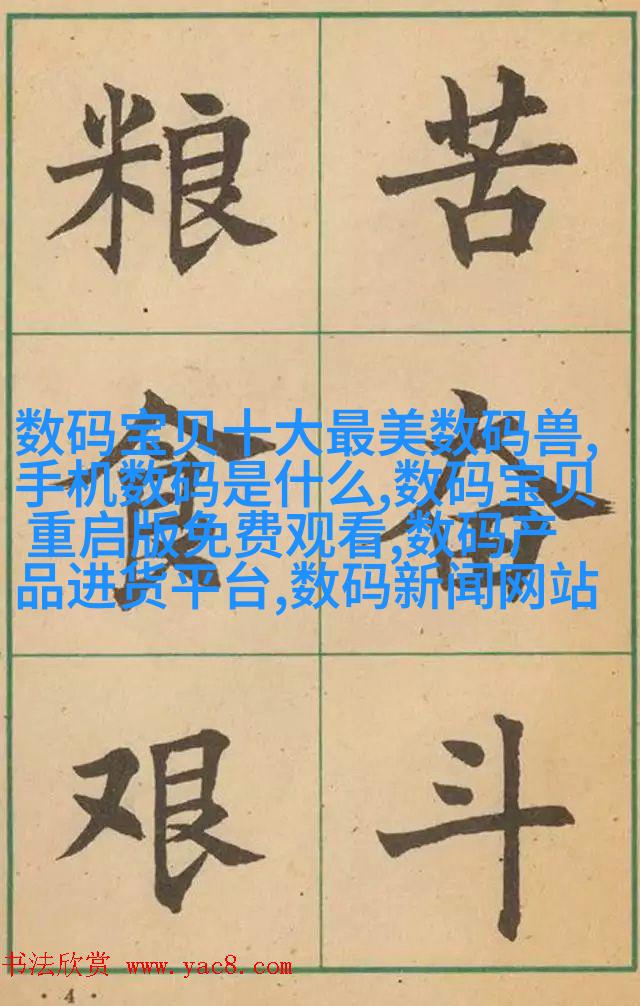 粮 苦
食 奋
艰 斗
数码宝贝十大最美数码兽,
手机数码是什么,数码宝贝
重启版免费观看,数码产
品进货平台,数码新闻网站
书法欣赏 www.yac8.com
· 4 ·